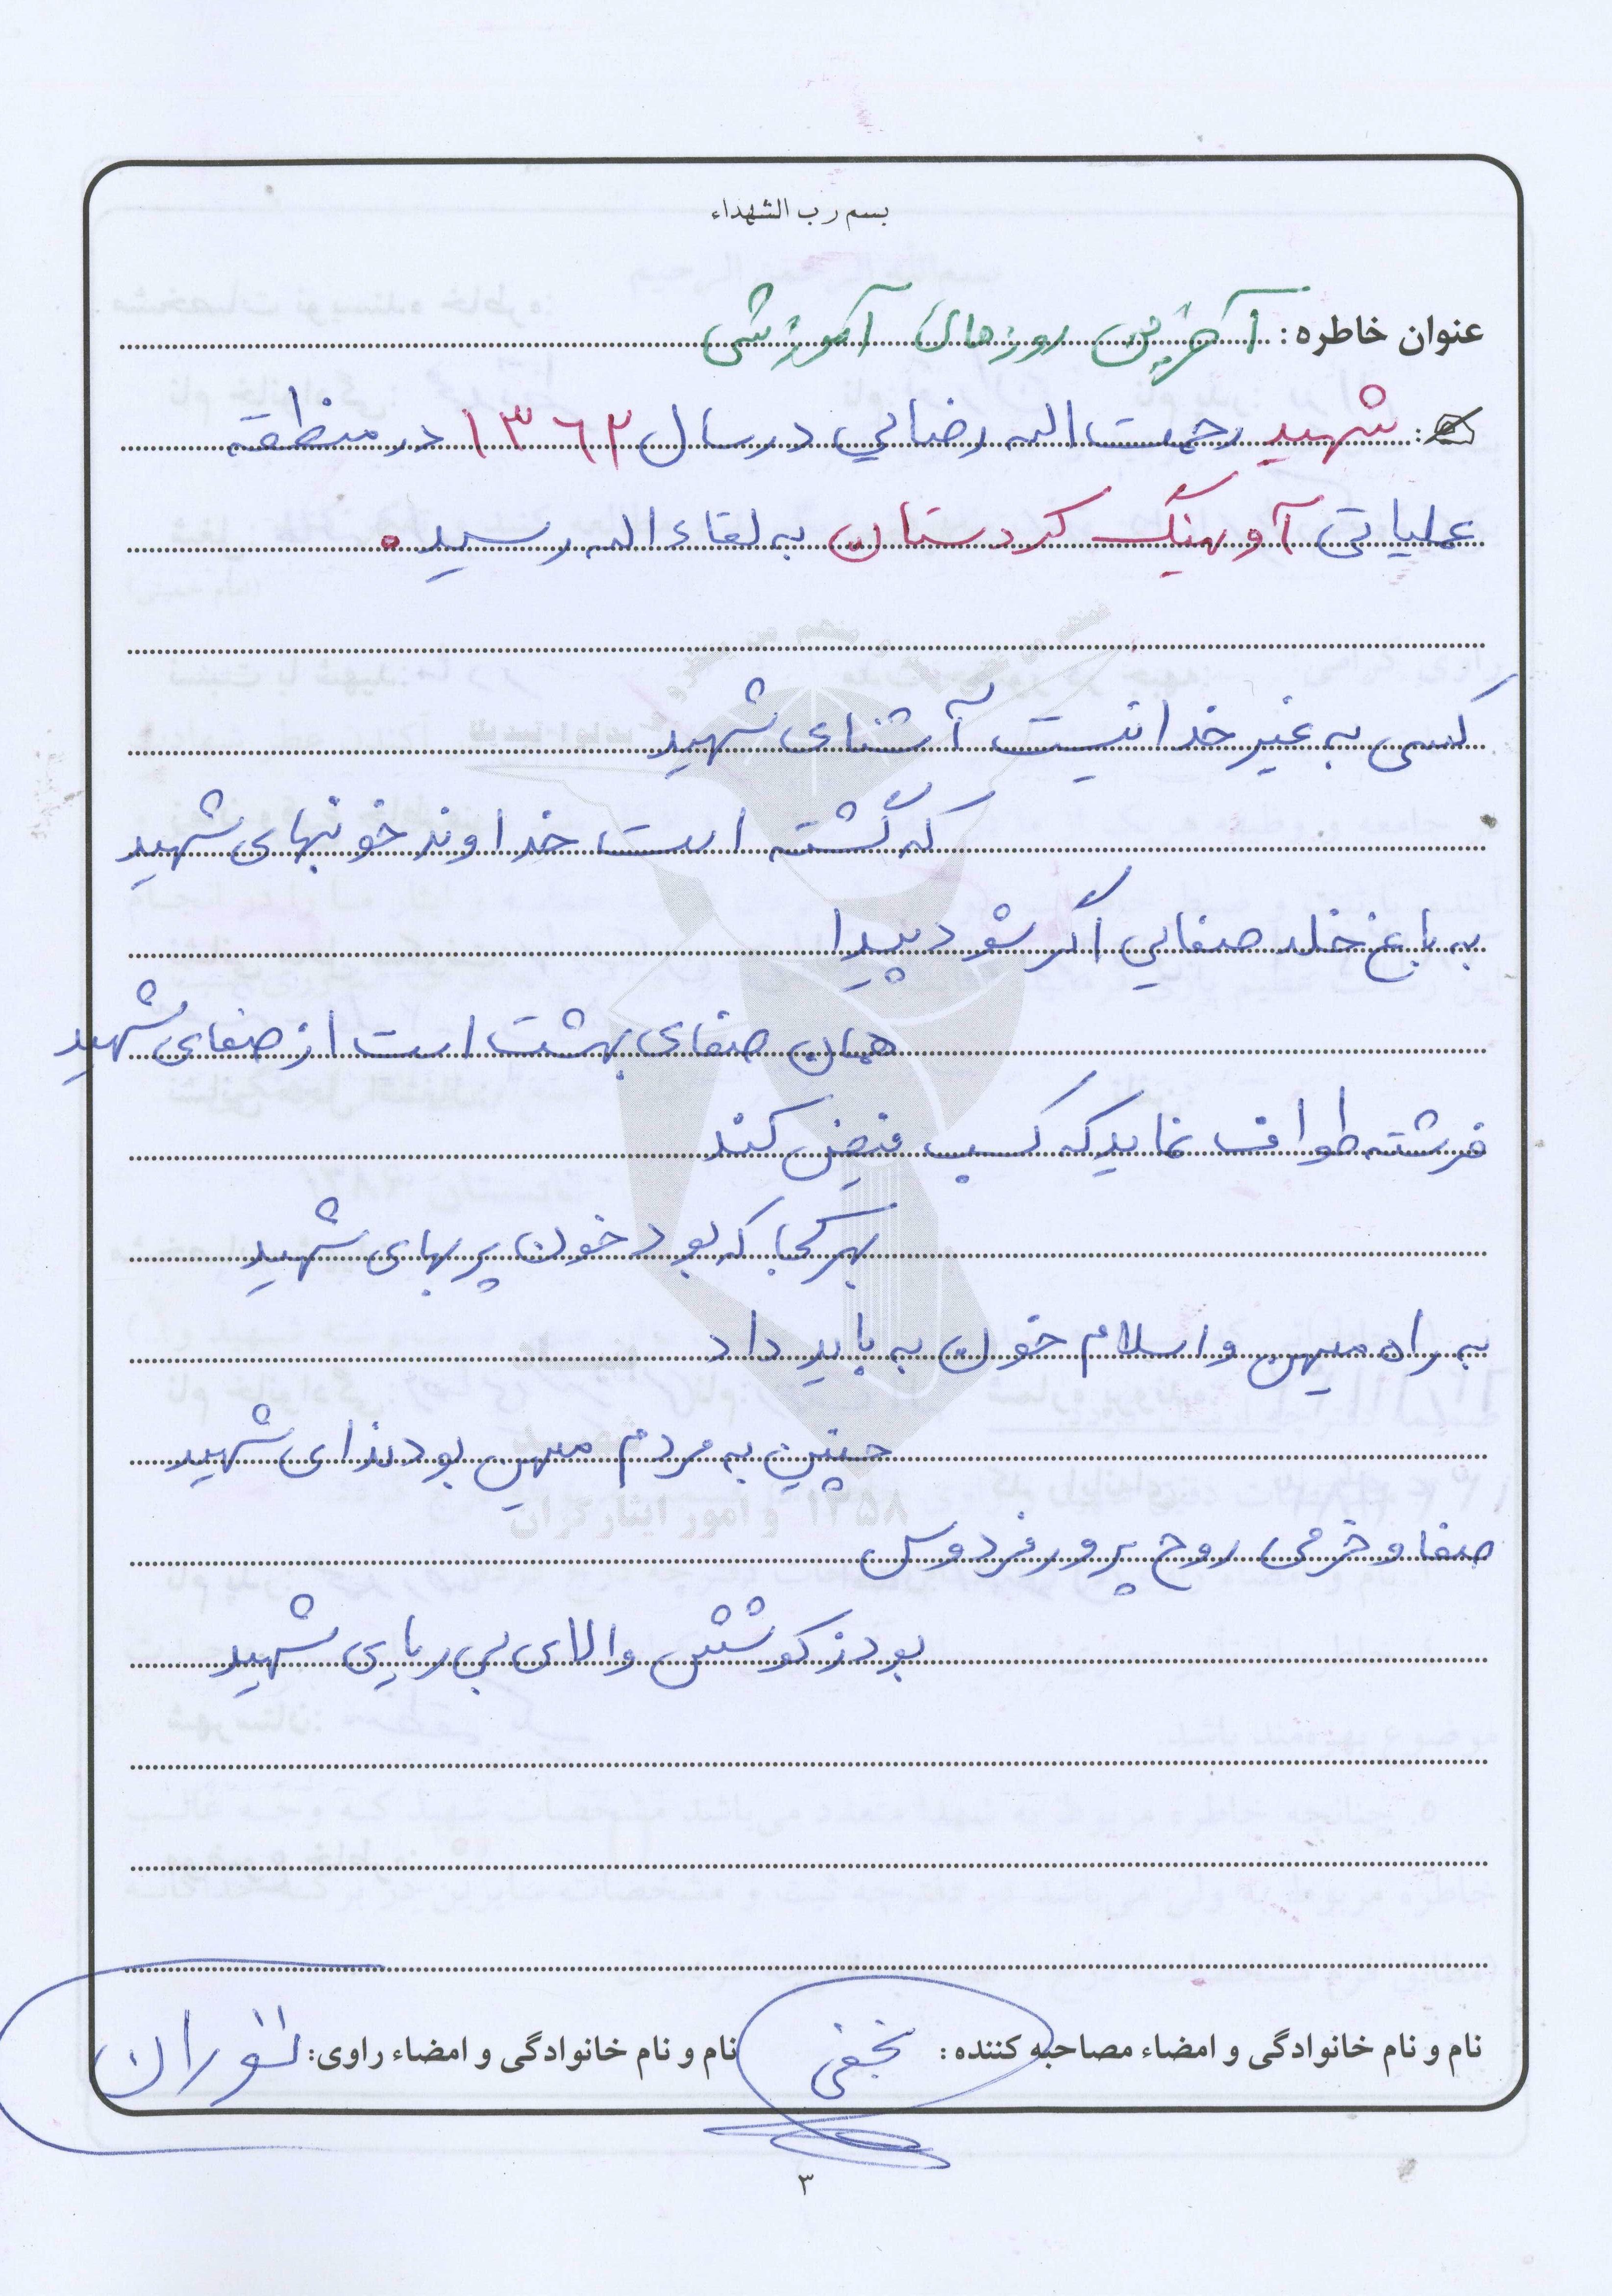 بسم رب الشهداء
عنوان خاطره: آخرین روزهای آموزشی
شهید رحمت اله رضایی در سال ۱۳۶۲ در منطقه
عملیاتی آوهنگ کردستان به لقاء اله رسید.
کسی به غیر خدا نیست آشنای شهید
که گشته است خداوند خونبهای شهید
به باغ خلد صفایی اگر شود پیدا
همان صفای بهشت است از صفای شهید
فرشته طواف نماید که کسب فیض کند
بهر کجا که بود خون پر بهای شهید
به راه میهن و اسلام خون به باید داد
چنین به مردم میهن بود ندای شهید
صفا و خرمی روح پرور فردوس
بود ز کوشش والای بی ریای شهید
نام و نام خانوادگی و امضاء مصاحبه کننده: نجفی
نام و نام خانوادگی و امضاء راوی:
۳